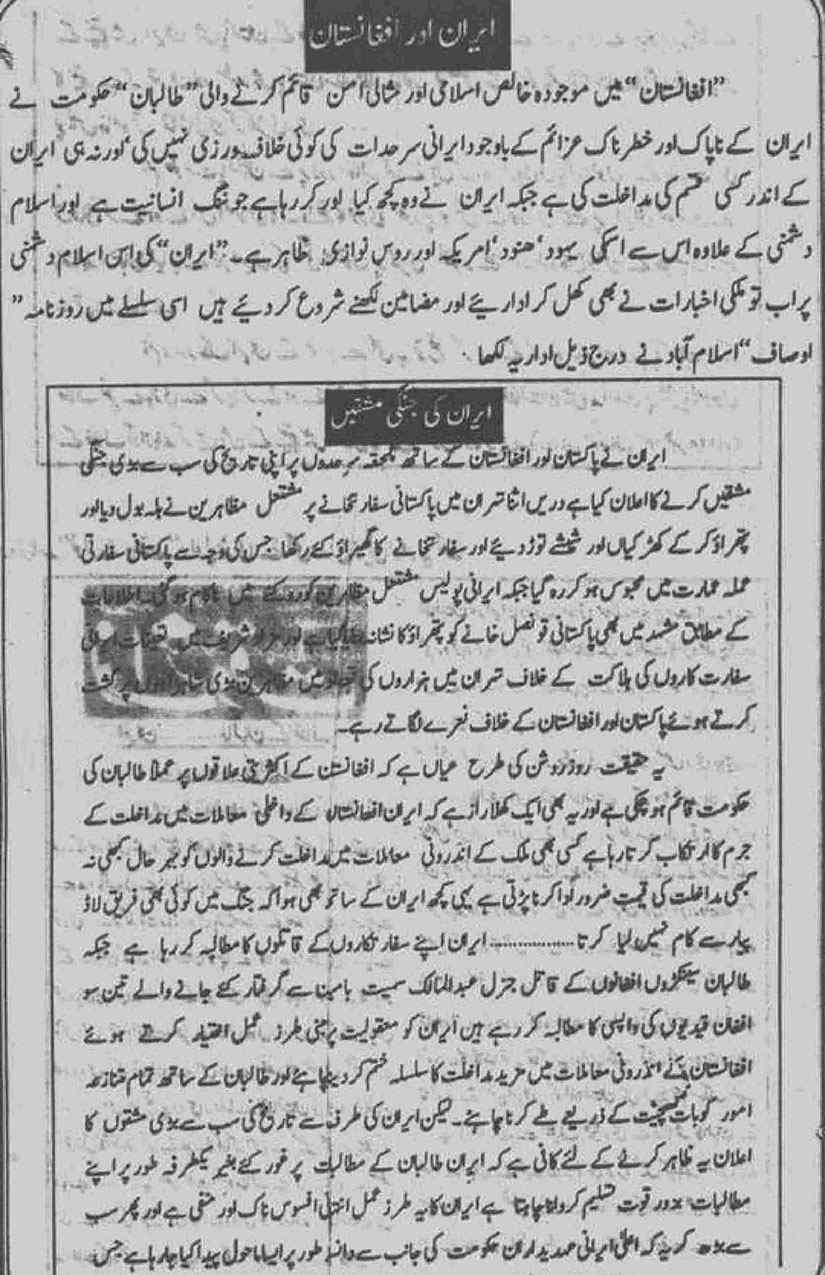 ایران اور افغانستان
”افغانستان“ میں موجودہ خالص اسلامی اور مثالی امن ”قائم کرنے والی ”طالبان“ حکومت نے
ایران کے ناپاک اور خطرناک عزائم کے باوجود ایرانی سرحدات کی کوئی خلاف ورزی نہیں کی‘ اور نہ ہی ایران
کے اندر کسی قسم کی مداخلت کی ہے جبکہ ایران نے وہ کچھ کیا اور کر رہا ہے جو ننگ انسانیت ہے اور اسلام
دشمنی کے علاوہ اس سے اسکی یہود‘ ہنود‘ امریکہ اور روس نوازی ظاہر ہے۔ ”ایران“ کی اس اسلام دشمنی
پر اب تو ملکی اخبارات نے بھی کھل کر اداریئے اور مضامین لکھنے شروع کر دیئے ہیں اسی سلسلے میں روزنامہ ”
اوصاف“ اسلام آباد نے درج ذیل اداریہ لکھا۔
ایران کی جنگی مشقیں
ایران نے پاکستان اور افغانستان کے ساتھ ملحقہ سرحدوں پر اپنی تاریخ کی سب سے بڑی جنگی
مشقیں کرنے کا اعلان کیا ہے دریں اثنا تہران میں پاکستانی سفارتخانے پر مشتعل مظاہرین نے ہلہ بول دیا اور
پتھراؤ کر کے کھڑکیاں اور شیشے توڑ دیئے اور سفارتخانے کا گھیراؤ کئے رکھا جس کی وجہ سے پاکستانی سفارتی
عملہ عمارت میں محبوس ہو کر رہ گیا جبکہ ایرانی پولیس مشتعل مظاہرین کو روکنے میں ناکام ہو گئی۔ اطلاعات
کے مطابق مشہد میں بھی پاکستانی قونصل خانے کو پتھراؤ کا نشانہ بنایا گیا ہے اور مزار شریف میں تعینات ایرانی
سفارت کاروں کی ہلاکت کے خلاف تہران میں ہزاروں کی تعداد میں مظاہرین بڑی شاہراہوں پر گشت
کرتے ہوئے پاکستان اور افغانستان کے خلاف نعرے لگاتے رہے۔
یہ حقیقت روز روشن کی طرح عیاں ہے کہ افغانستن کے اکثریتی علاقوں پر عملاً طالبان کی
حکومت قائم ہو چکی ہے اور یہ بھی ایک کھلا راز ہے کہ ایران افغانستان کے داخلی معاملات میں مداخلت کے
جرم کا ارتکاب کرتا رہا ہے کسی بھی ملک کے اندرونی معاملات میں مداخلت کرنے والوں کو بہر حال کبھی نہ
کبھی مداخلت کی قیمت ضرور ادا کرنا پڑتی ہے یہی کچھ ایران کے ساتھ بھی ہوا کہ جنگ میں کوئی بھی فریق لاڈ
پیار سے کام نہیں لیا کرتا ............... ایران اپنے سفارتکاروں کے قاتلوں کا مطالبہ کر رہا ہے جبکہ
طالبان سینکڑوں افغانوں کے قاتل جنرل عبدالمالک سمیت بامیان سے گرفتار کئے جانے والے تین سو
افغان قیدیوں کی واپسی کا مطالبہ کر رہے ہیں ایران کو معقولیت پر مبنی طرز عمل اختیار کرتے ہوئے
افغانستان کے اندرونی معاملات میں مزید مداخلت کا سلسلہ ختم کر دینا چاہئے اور طالبان کے ساتھ تمام متنازعہ
امور کو بات چیت کے ذریعے طے کرنا چاہئے۔ لیکن ایران کی طرف سے تاریخ کی سب سے بڑی مشقوں کا
اعلان یہ ظاہر کرنے کے لئے کافی ہے کہ ایران طالبان کے مطالبات پر غور کئے بغیر یکطرفہ طور پر اپنے
مطالبات بزور قوت تسلیم کروانا چاہتا ہے ایران کا یہ طرز عمل انتہائی افسوس ناک اور منفی ہے اور پھر سب
سے بڑھ کر یہ کہ اعلیٰ ایرانی عہدیداران حکومت کی جانب سے دانستہ طور پر ایسا ماحول پیدا کیا جا رہا ہے جس